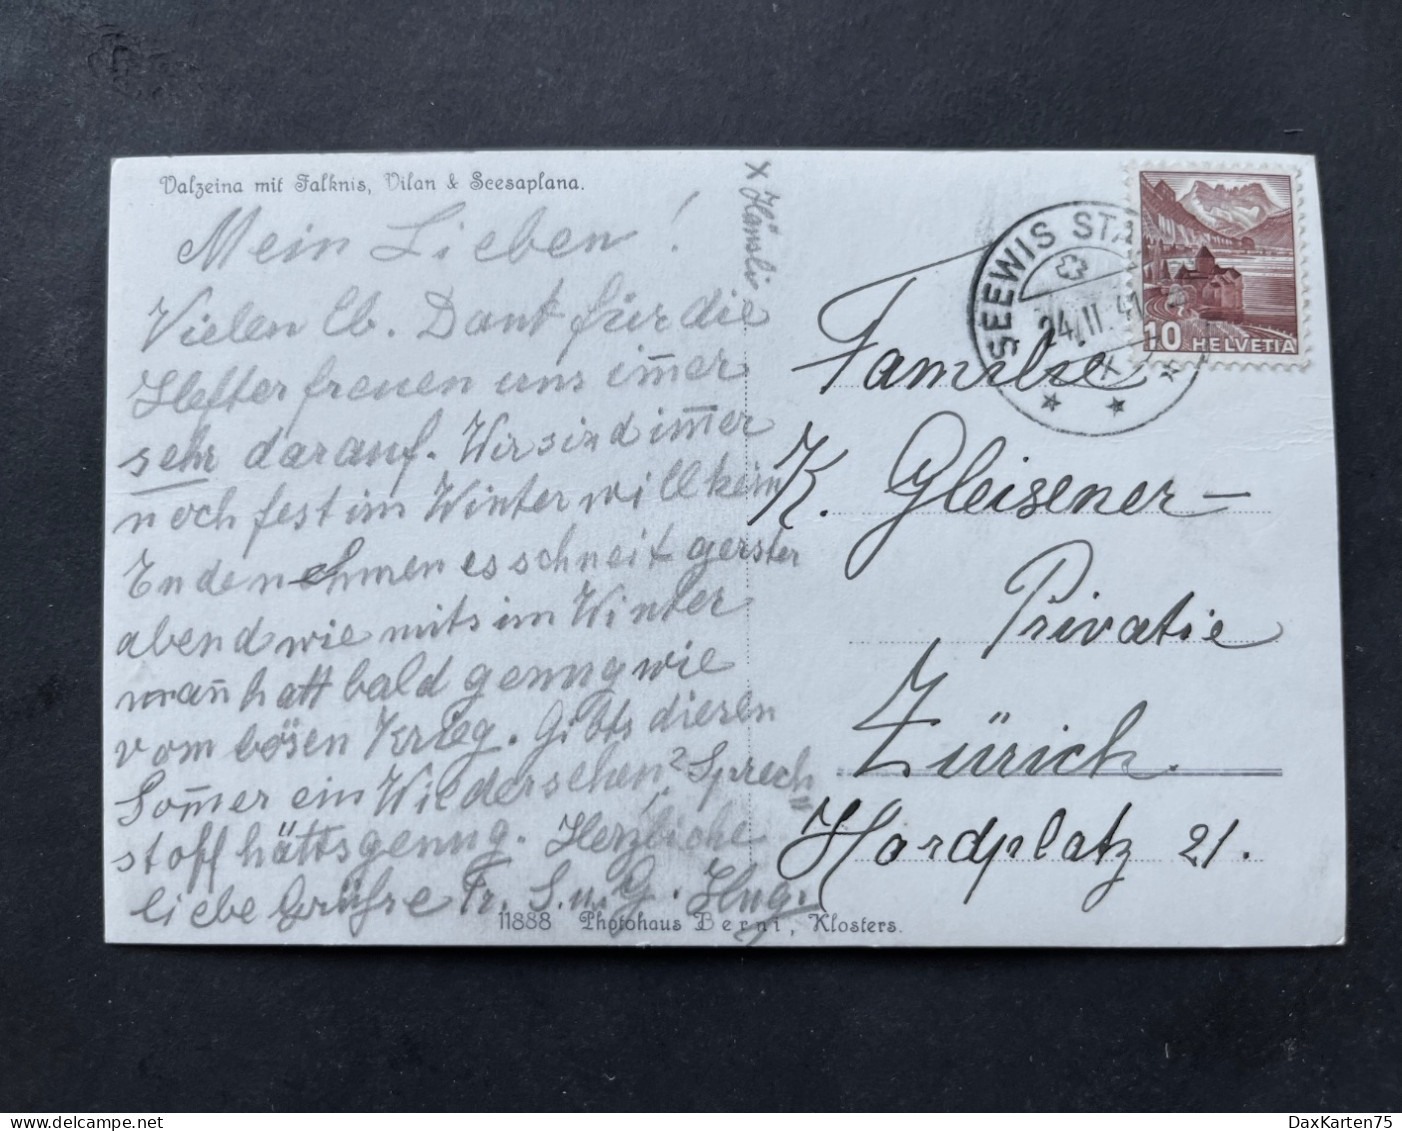 Valzeina mit Falknis, Vilan & Seesaplana.
Mein Lieben!
Vielen lb. Dank für die
Hefter freuen uns im̅er
sehr darauf. Wir sind im̅er
noch fest im Winter will kein
Ende nehmen es schneit gerster
abend wie mits im Winter
man̅ hatt bald genug wie
vom bösen Krieg. Gibts diesen
Som̅er ein Wiedersehen? Sprech„
stoff hätts genug. Herzliche
liebe Grühse Fr. S. u. G. Hug.
x Hänsli
11888 Photohaus Berni, Klosters.
SEEWIS STA
24.II.41
10 HELVETIA
Familie
K. Gleisener–
Privatie
Zürich.
Hardplatz 21.
DaxKarten75